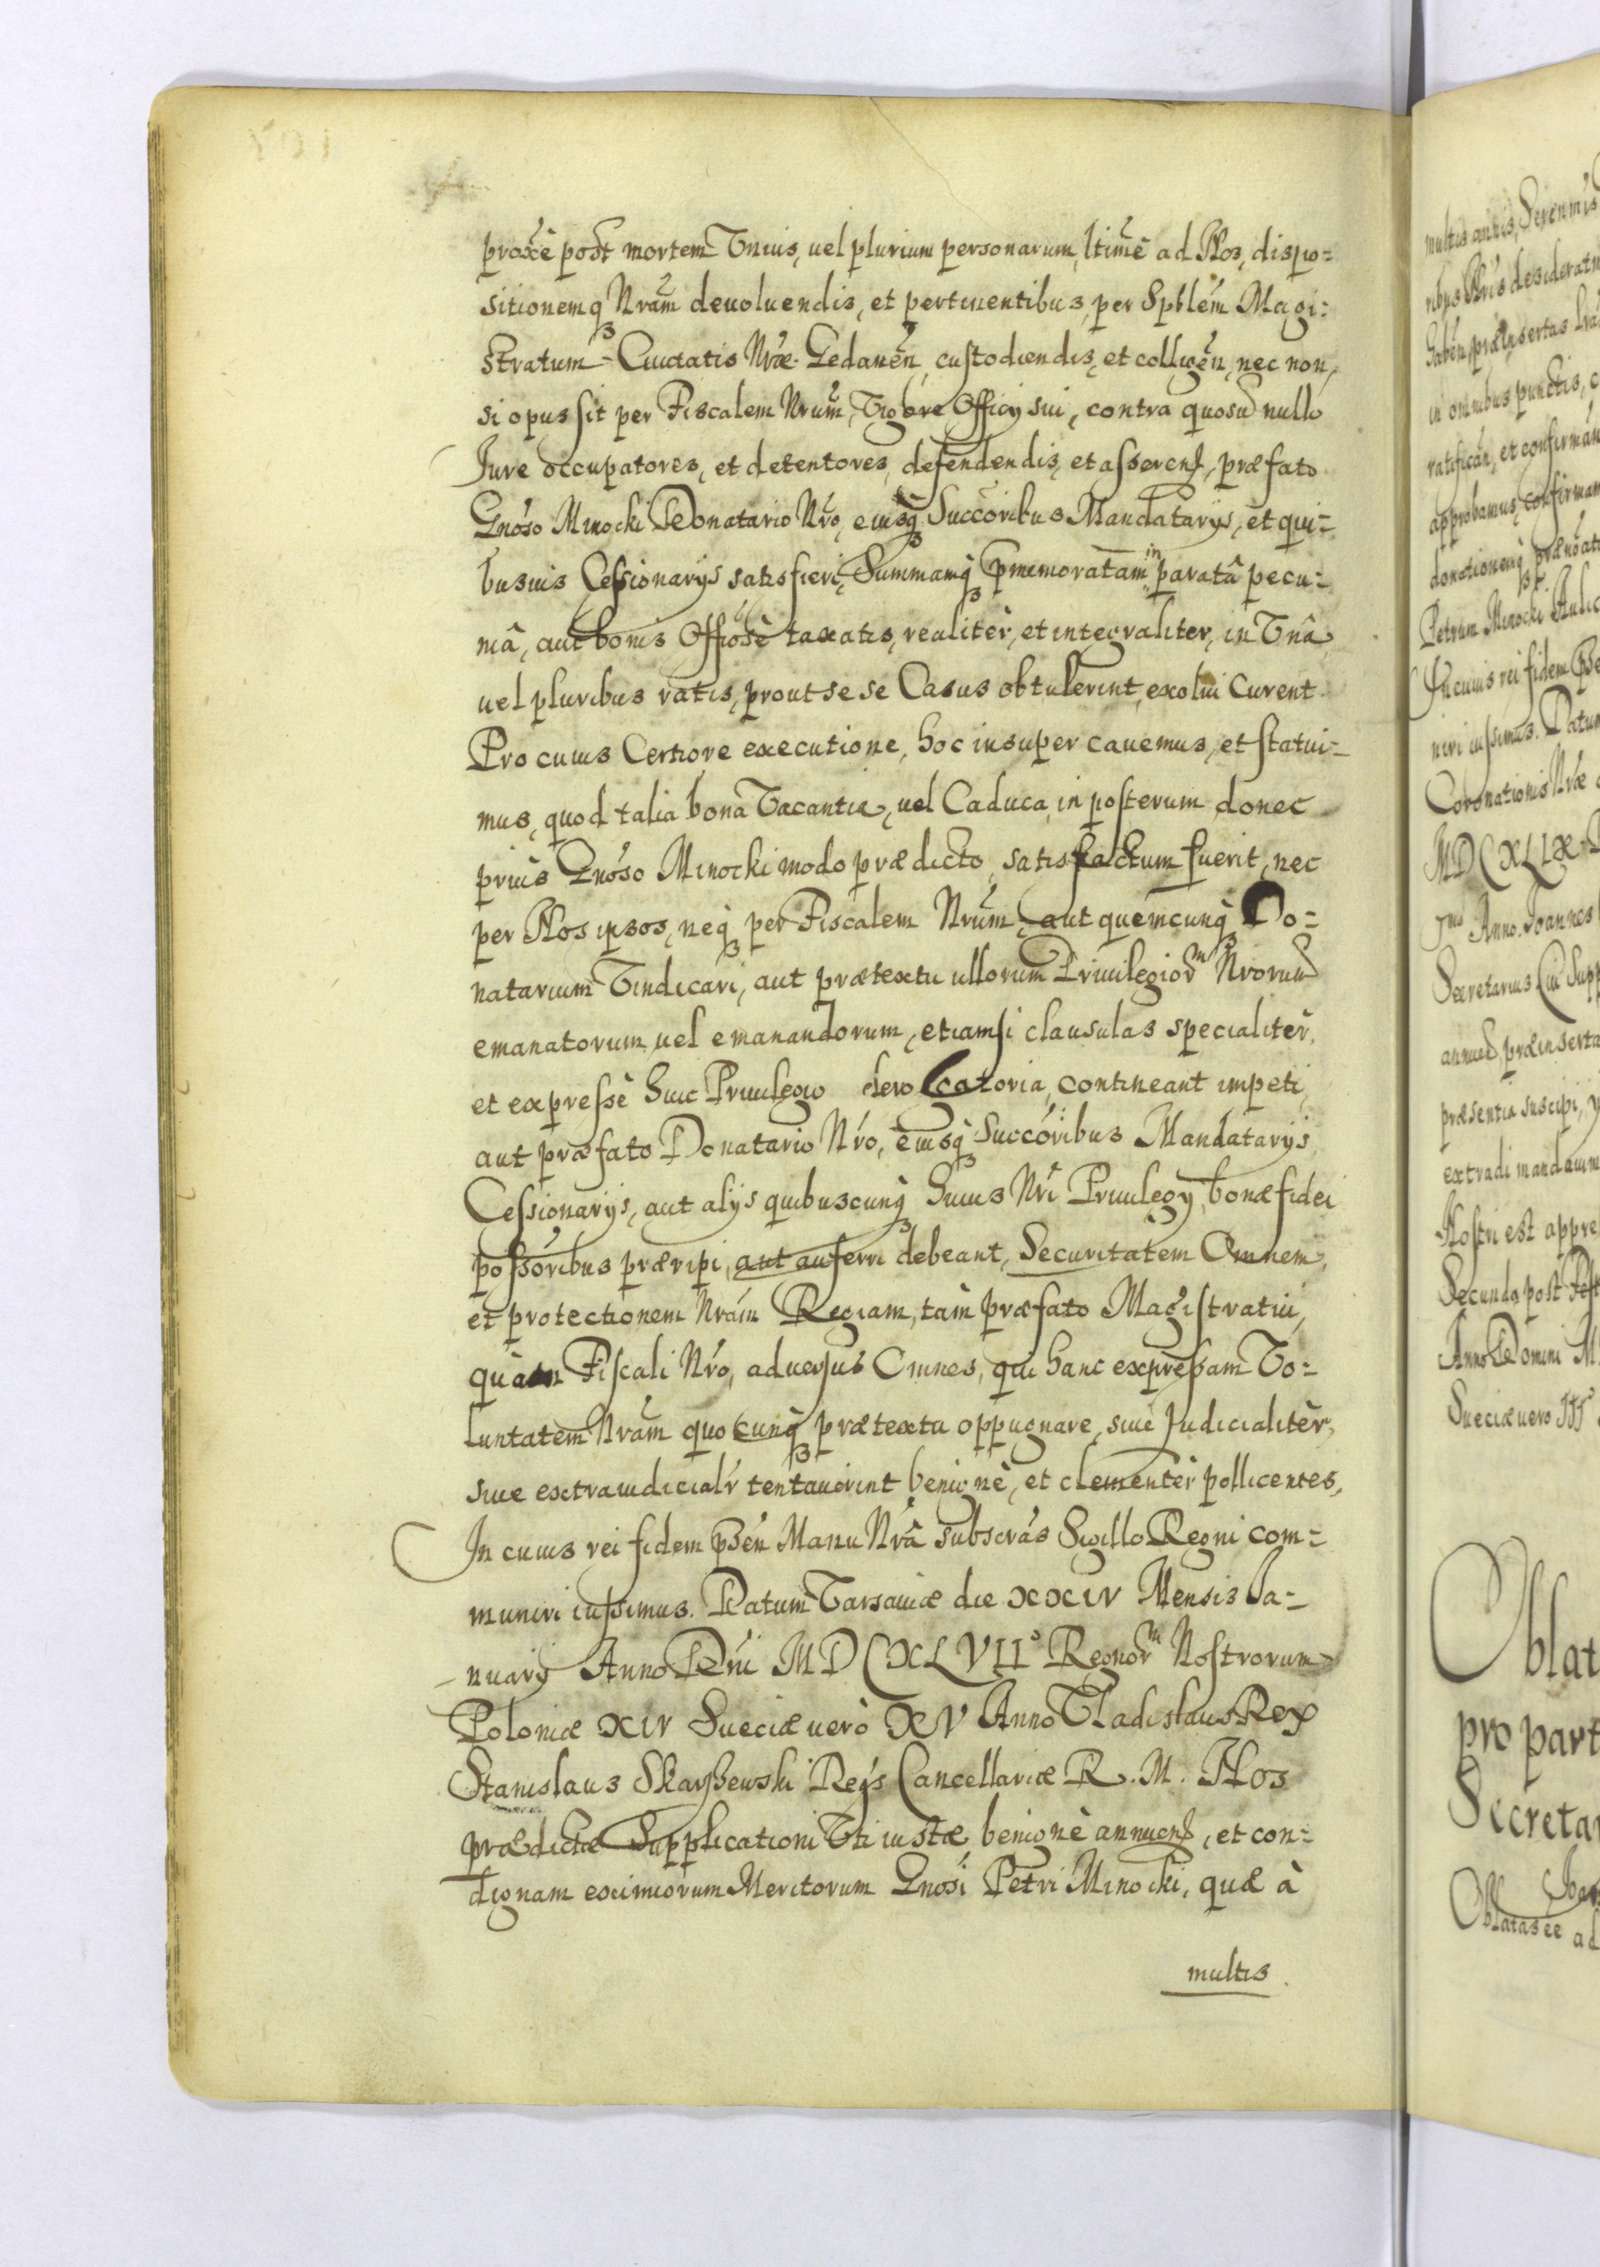 proxè post mortem Vnius, uel plurium personarum, ltimè ad Nos, dispo=
sitionemq3 Nram deuoluendis, et pertinentibus, per Spblem Magi=
stratum Ciuitatis Nræ Gedanen, custodiendis, et colligen, nec non,
si opus sit per Fiscalem Nrum, Vigore Officij sui, contra quosuis nullo
Jure occupatores, et detentores, defendendis, et asserens, præfato
Gnoso Minocki Donatario Nro, eiusq3 Succoribus Mandatarijs, et qui=
busuis Cessionarijs satisfieri, Summamq3 pmemoratam in paratâ pecu=
niâ, aut bonis Offiosè taxatis, realitèr, et integraliter, in Vnâ,
uel pluribus ratis, prout se se Casus obtulerint, exolui Curent
Pro cuius Certiore executione, hoc insuper cauemus, et statui=
mus, quod talia bona Vacantia, uel Caduca, in posterum donec
priùs Gnoso Minocki modo prædicto, satisfactum fuerit, nec
per Nos ipsos, neq3 per Fiscalem Nrum, aut quemcunq3 Do=
natarium Vindicari, aut prætextu ullorum Priuilegiorm Nrorum
emanatorum uel emanandorum, etiamsi clausulas specialitèr,
et expressè huic Priuilegio derogatoria, contineant impeti,
aut præfato Donatario Nro, eiusq3 Succoribus Mandatarijs,
Cessionarijs, aut alijs quibuscunq3 huius Nri Priuilegij, bonæ fidei
possoribus præripi, aut auferri debeant, Securitatem Omnem,
et protectionem Nram Regiam, tàm præfato Magistratui,
quàm Fiscali Nro, aduersus Omnes, qui hanc expressam Vo=
luntatem Nram quocunq3 prætextu oppugnare, siue Judicialitèr,
siue extraiudicialr tentauerint, benignè, et clementèr pollicentes,
In cuius rei fidem psen Manu Nrâ subscras Sigillo Regni com=
muniri iussimus. Datum Varsauiæ die XXIV Mensis Ja=
nuarij Anno Dni MDCXLVIIo Regnorm Nostrorum
Poloniæ XIV Sueciæ uerò XV Anno Vladislaus Rex
Stanislaus Skarszewski Regs Cancellariæ R. M. Nos
prædictæ Supplicationi Vti iustæ, benignè annuens, et con=
dignam eximiorum Meritorum Gnosi Petri Minocki, quæ à
multis
multis annis, Serenmis
ribus Nris desideratu
in omnibus punctis, c
ratifican, et confirman
approbamus, confirmam
Petrum Minocki Aulic
In cuius rei fidem pse
niri iussimus. Datum
Coronationis Nræ
MDCXLIX
Anno. Joannes
Secretarius
præsentia suscipi,
extradi mandauim
Nostri est appre
Secunda post Fest
Anno Domini M
Sueciæ uero
Oblat
pro part
Secretar
Oblatas ee ad